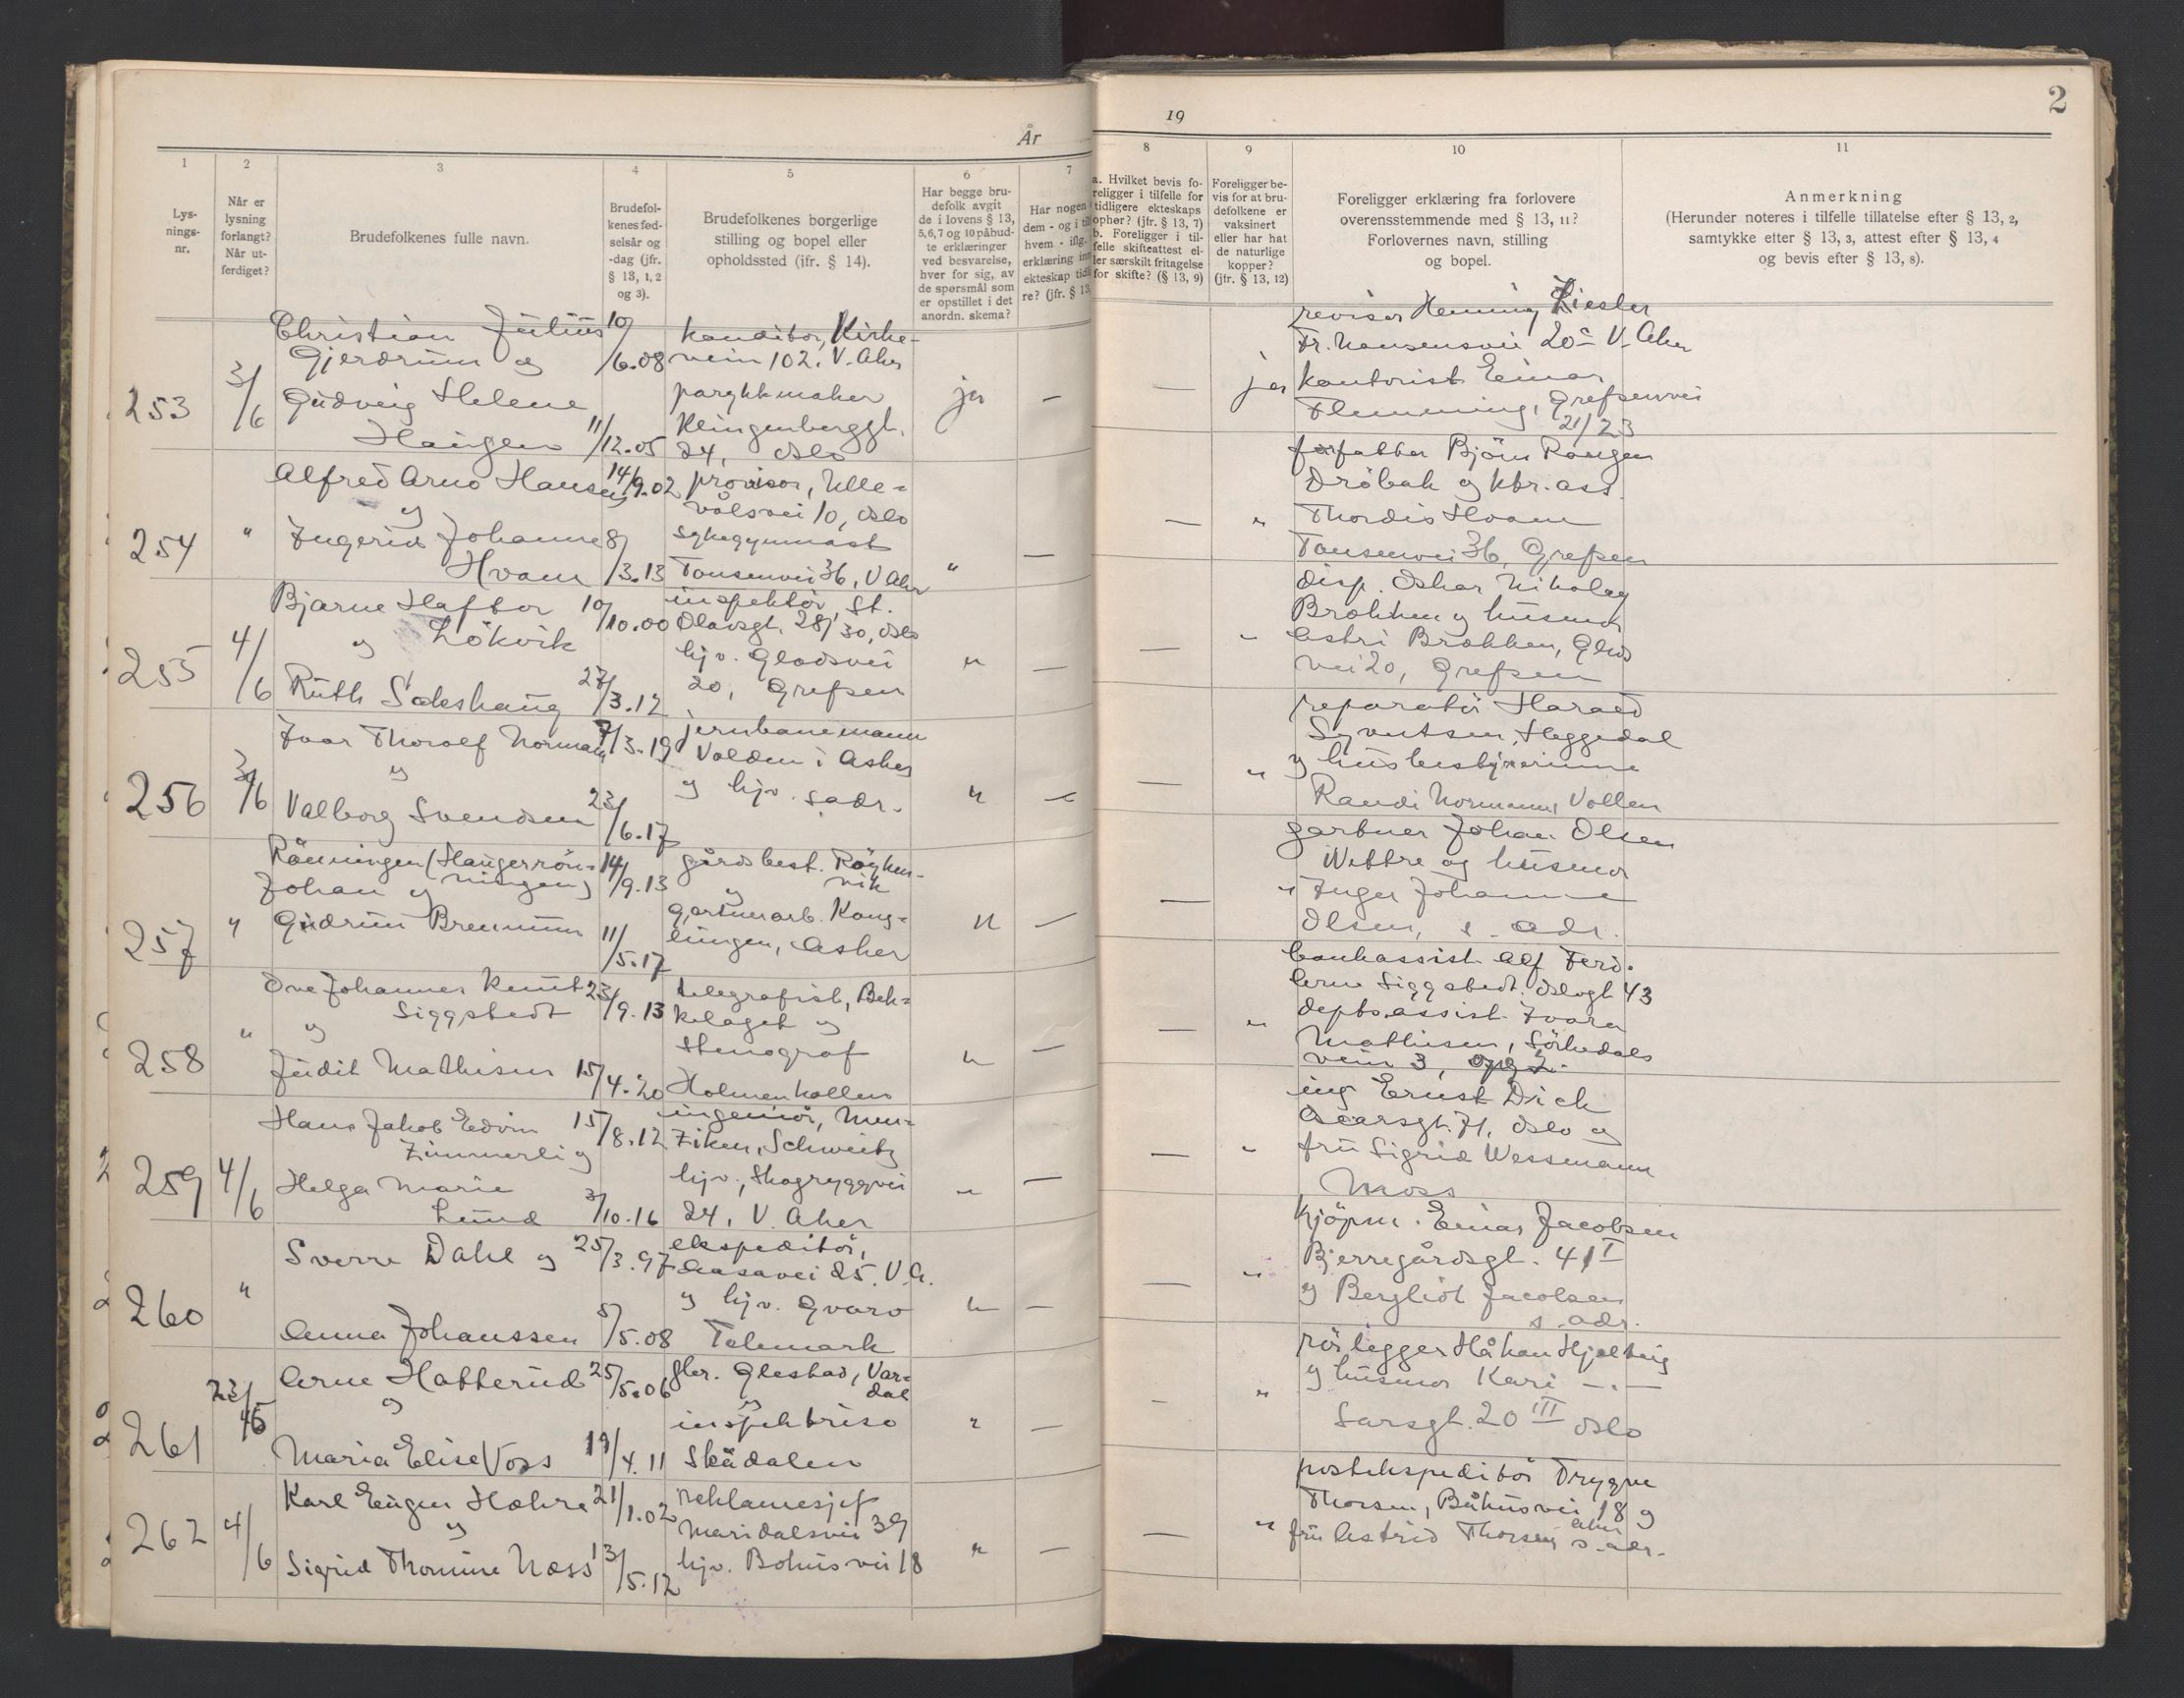 År
19
2
1
2
3
4
5
6
7
8
9
10
11
Lys-
nings-
nr.
Når er
lysning
forlangt?
Når ut-
ferdiget?
Brudefolkenes fulle navn.
Brudefol-
kenes fød-
selsår og
-dag (jfr.
§ 13, 1, 2
og 3).
Brudefolkenes borgerlige
stilling og bopel eller
opholdssted (jfr. § 14).
Har begge bru-
defolk avgit
de i lovens § 13,
5, 6, 7 og 10 påbud-
te erklæringer
ved besvarelse,
hver for sig, av
de spørsmål som
er opstillet i det
anordn. skema?
Har nogen
dem - og i
hvem - iflg.
erklæring
ekteskap
re? (jfr. § 13
a. Hvilket bevis fo-
religger i tilfelle for
tidligere ekteskaps
ophør? (jfr. § 13, 7)
b. Foreligger i til-
felle skifteattest el-
ler særskilt fritagelse
for skifte? (§ 13, 9)
Foreligger be-
vis for at bru-
defolkene er
vaksinert
eller har hat
de naturlige
kopper?
(jfr. § 13, 12)
Foreligger erklæring fra forlovere
overensstemmende med § 13, 11?
Forlovernes navn, stilling
og bopel.
Anmerkning
(Herunder noteres i tilfelle tillatelse efter § 13, 2,
samtykke efter § 13, 3, attest efter § 13, 4
og bevis efter § 13, 8).
253
3/6
Christian Julius
Gjerdrum og
Gudveig Helene
Haugen
10/6.08
11/12.05
konditor, Kirke-
veien 102. V. Aker
parykkmaker
Klingenberggt.
24, Oslo
ja
—
—
ja
revisor Henning Kiesler
Fr. Nansensvei 20 V. Aker
kontorist Einar
Flemming, Grefsenvei
21/23
254
"
Alfred Arno Hansen
og
Ingerid Johanne
Hvam
14/9.02
8/3.13
provisor, Ulle-
vålsvei 10, Oslo
sykegymnast
Tonsenvei 36, V Aker
"
—
—
"
forfatter Björn Rongen
Dröbak og ktr.ass.
Thordis Hvam
Tonsenvei 36, Grefsen
255
4/6
Bjarne Haftor
og Lökvik
Ruth Sakshaug
10/10.00
27/3.12
inspektör, St.
Olavsgt. 28/30, Oslo
hjv. Gladsvei
20, Grefsen
"
—
—
"
disp. Oskar Nikolay
Brækken og husmor
Astri Brækken, Glads
vei 20, Grefsen
256
3/6
Ivar Thorolf Normann
og
Valborg Svendsen
7/3.19
23/6.17
jernbanemann
Vollen i Asker
og hjv. s adr.
"
—
—
"
reparatör Harald
Syvertsen, Heggedal
og husbestyrerinne
Randi Normann, Vollen
257
"
Rönningen (Haugerrön-
Johan og ningen)
Gudrun Brennum
14/9.13
11/5.17
gårdsbest. Röyken-
og vik
gartnerarb. Kong-
lungen, Asker
"
—
—
"
gartner Johan Olsen
Wettre og husmor
Inger Johanne
Olsen, s. adr.
258
"
Ove Johannes Knut
Siggstedt
og
Judit Mathisen
23/9.13
15/4.20
telegrafist, Bek-
kelaget og
Stenograf
Holmenkollen
"
—
—
"
bankassist. Alf Ferd.
Arne Siggstedt. Oslogt 43
depts.assist. Ivara
Mathisen, Sörkedals
veien 3, opg 2.
259
4/6
Hans Jakob Edvin
Zimmerli og
Helga Marie
Lund
15/8.12
3/10.16
ingeniör, Men-
ziken, Schweitz
hjv., Skogryggvei
24, V. Aker
"
—
—
"
ing Ernst Dick
Oscarsgt. 71, Oslo og
fru Sigrid Wessmann
Moss
260
"
Sverre Dahl og
Anna Johanssen
25/3.97
5/5.08
ekspeditör,
Aasavei 25. V.A.
og hjv. Gvarv
Telemark
"
—
—
"
Kjöpm. Einar Jacobsen
Bjerregårdsgt. 41 I
og Bergliot Jacobsen
s. adr.
261
23/5
Arne Hatterud
og
Maria Elise Voss
25/5.06
19/4.11
gbr. Glestad, Var-
og dal
inspektrise
Skådalen
"
—
-
"
rörlegger Håkon Hjelteig
og husmor Kari — " —
Sarsgt. 20 III Oslo
262
4/6
Karl Eugen Hæhre
og
Sigrid Thomine Næss
21/1.02
13/5.12
reklamesjef
Maridalsvei 39
hjv. Bohusvei 18
"
—
—
"
postekspeditör Trygve
Thorsen, Båhusvei 18 og
Aker
fru Astrid Thorsen s. adr.